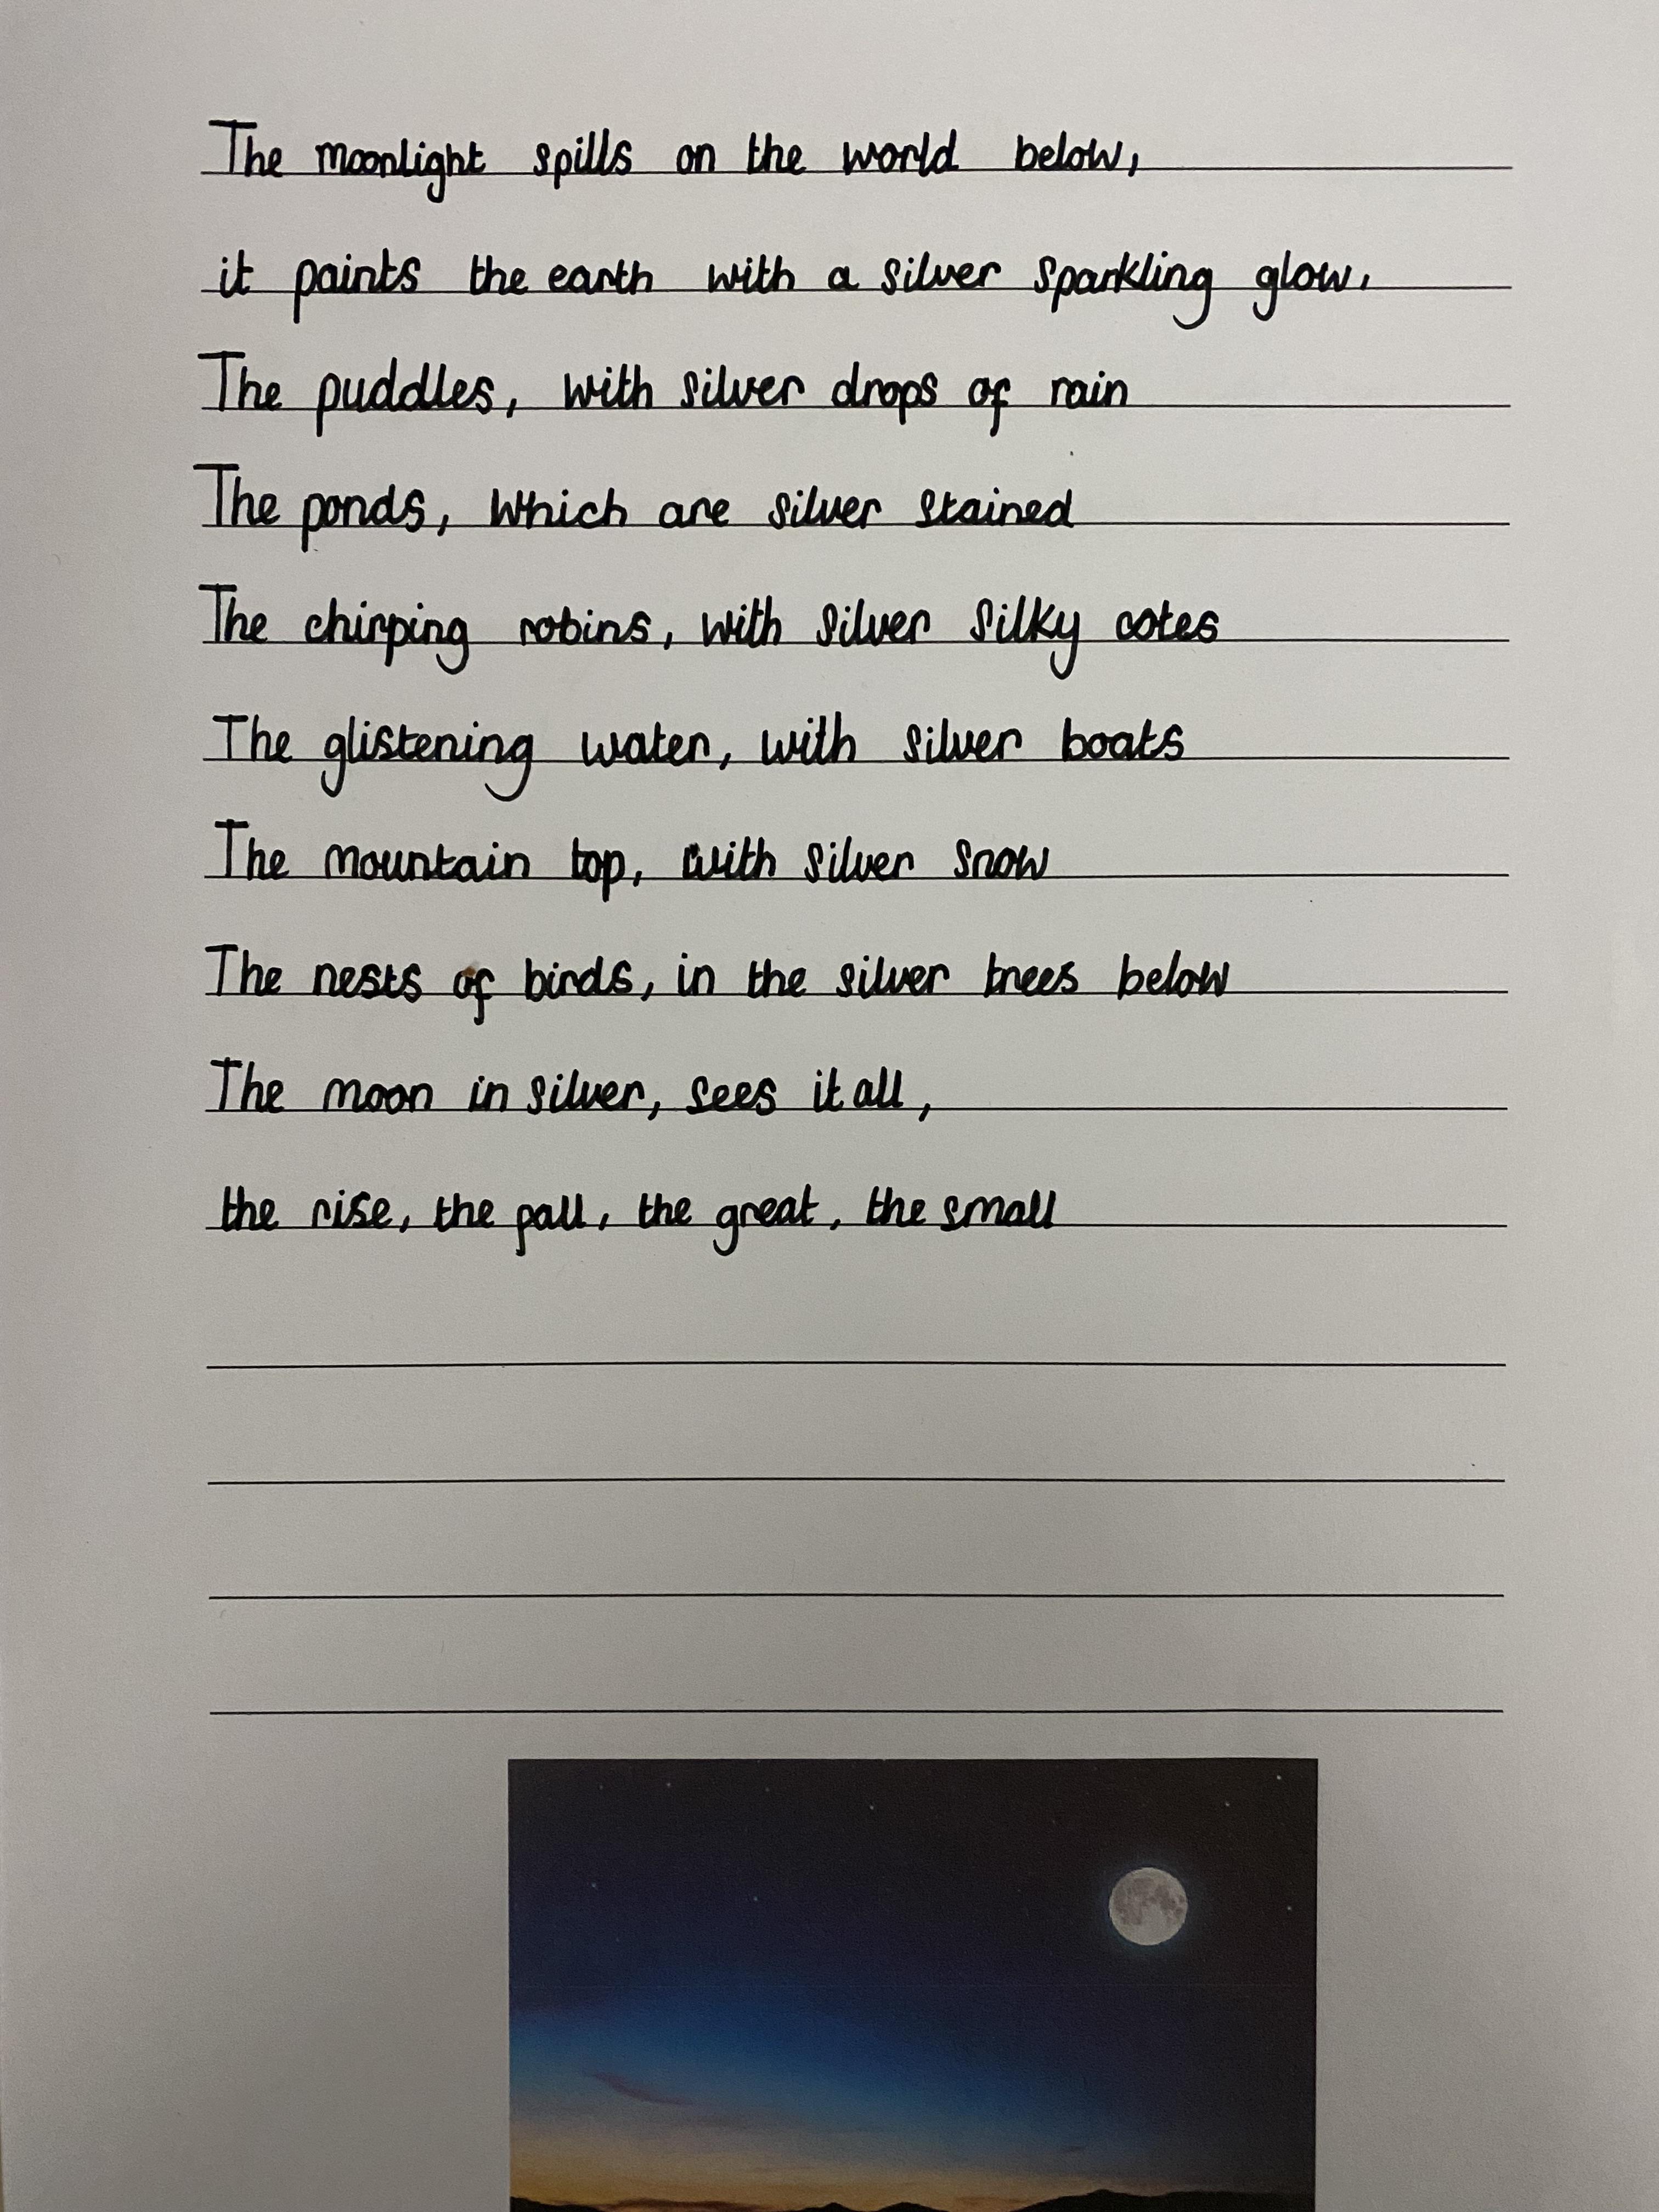 The moonlight spills on the world below,
it paints the earth with a silver sparkling glow,
The puddles, with silver drops of rain
The ponds, which are silver stained
The chirping robins, with silver silky cotes
The glistening water, with silver boats
The mountain top, with silver snow
The nests of birds, in the silver trees below
The moon in silver, sees it all,
the rise, the fall, the great, the small